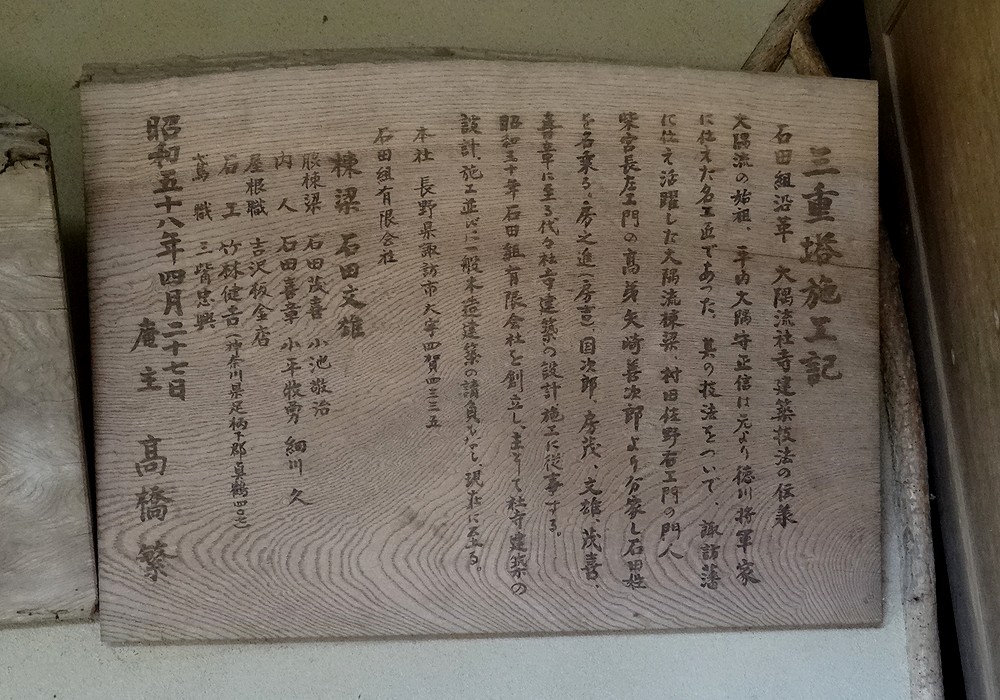 三重塔施工記
石田組沿革　大隅流社寺建築技法の伝業
大隅流の始祖、平内大隅守正信は元より徳川将軍家
に仕えた名工匠であった、其の技法をついで、諏訪藩
に仕え活躍した大隅流棟梁、村田佐野右エ門の門人
柴宮長左エ門の高弟矢崎善次郎より分家し石田姓
を名乗る。房之進(房吉)、国次郎、房茂、文雄、茂喜、
喜章に至る代々社寺建築の設計施工に従事する。
昭和三十年石田組有限会社を創立し、主として社寺建築の
設計、施工並びに一般木造建築の請負をなし現在に至る。
本社　長野県諏訪市大字四賀四三三五
石田組有限会社
棟梁　石田文雄
脇棟梁　石田茂喜　小池敬治
内人　石田喜章　小平牧勇　細川久
屋根職　吉沢板金店
石工　竹林健吉(神奈川県足柄下郡真鶴四〇七)
鳶職　三觜忠興
昭和五十八年四月二十七日
庵主　高橋繁